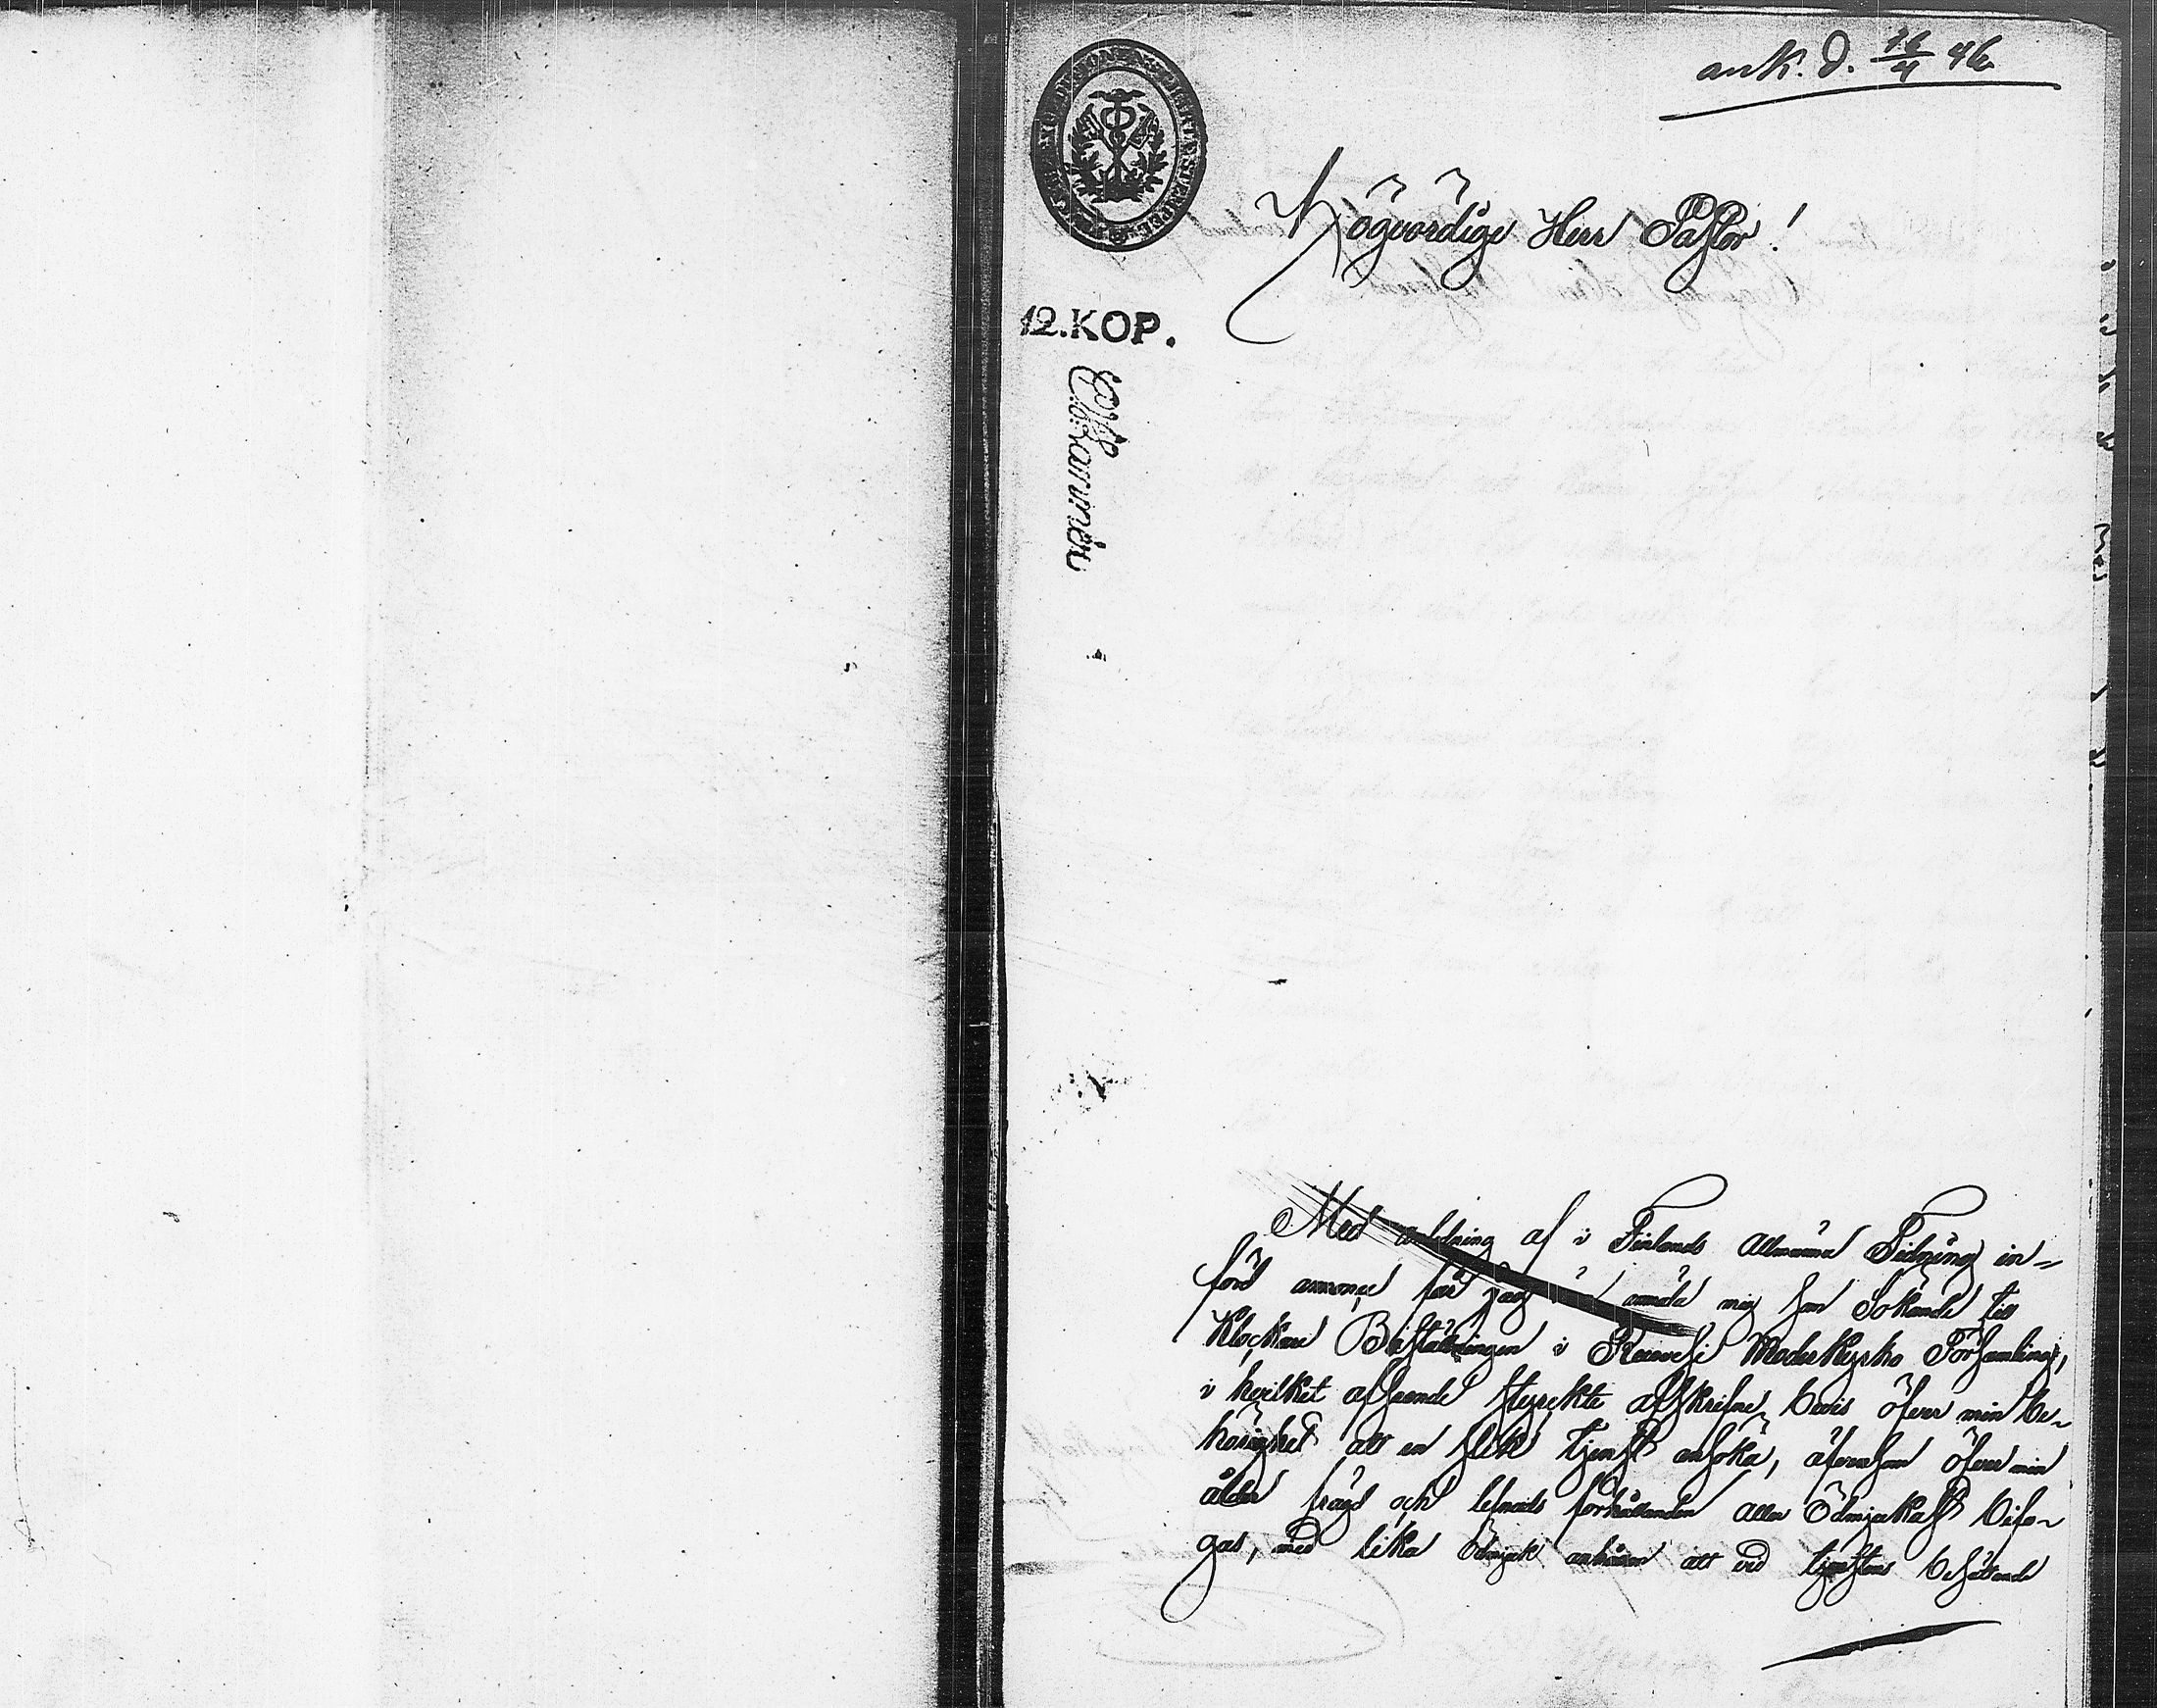 ank. d. 16/4 46
Högvördige Herr Pastor!
12. KOP.
Med anledning af i Finlands Allmänna Tidning in=
förd annonçe får jag anmäla mig som Sökande till
Klockare Beställningen i Rautvesi Moderkyrko Församling,
i hvilket afseende styrckte afskrifne bevis öfver min be-
hörighet att en slik tjenst ansöka, äfvensom öfver min
ålder frägd och lefnads förhållanden aller Ödmjukast bifo-
gas, med lika Ödmjuk anhållan att vid tjenstens besättande